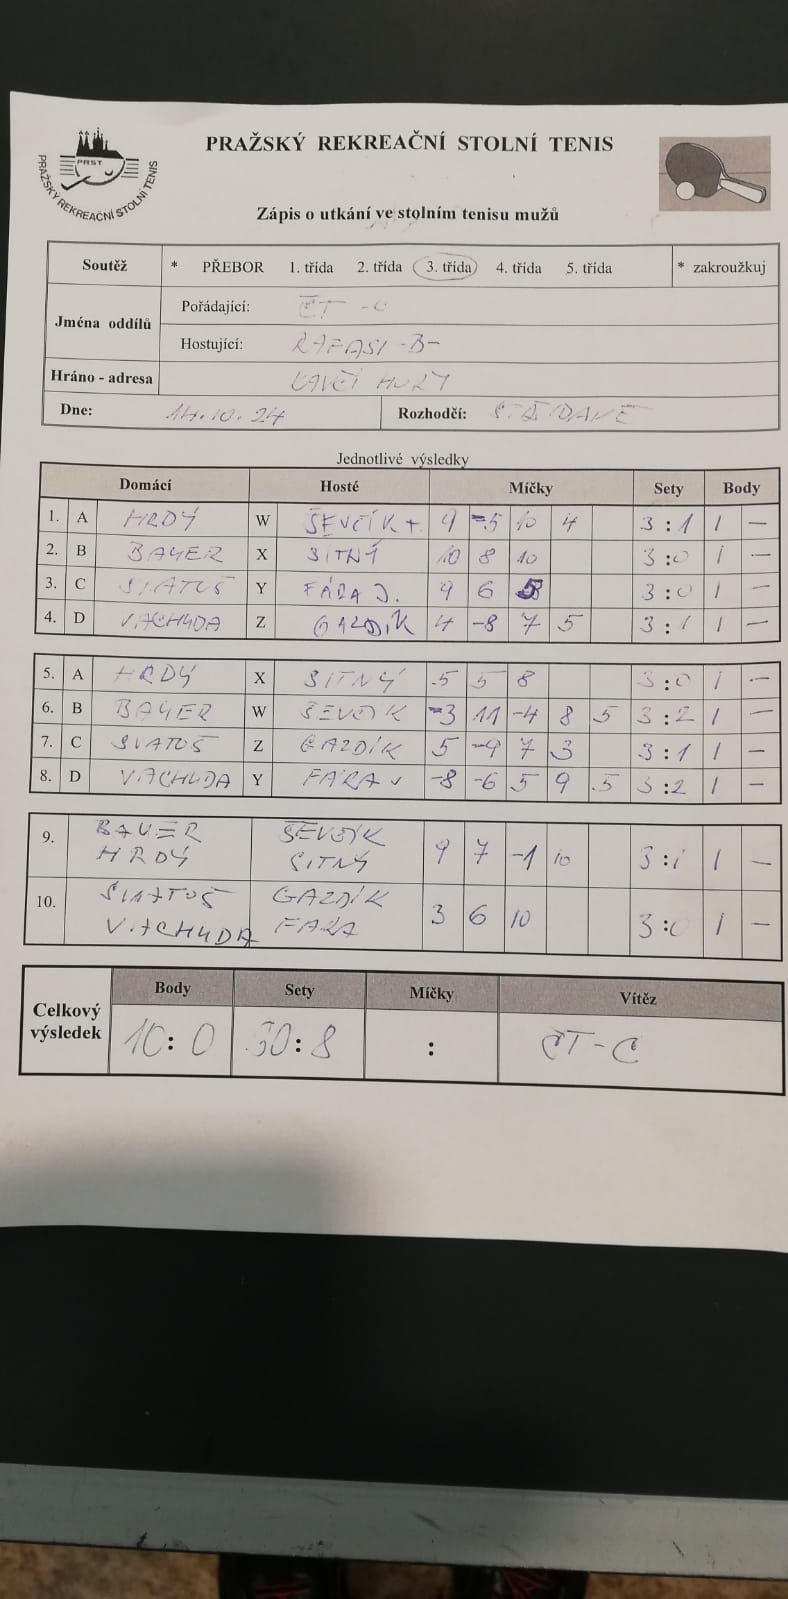 PRST
PRAŽSKÝ REKREAČNÍ STOLNÍ TENIS
PRAŽSKÝ REKREAČNÍ STOLNÍ TENIS
Zápis o utkání ve stolním tenisu mužů
Soutěž * PŘEBOR 1. třída 2. třída 3. třída 4. třída 5. třída * zakroužkuj
Jména oddílů
Pořádající: ČT - C
Hostující: RAFASI -B-
Hráno - adresa KAVČÍ HORY
Dne: 14.10.24 Rozhodčí: STŘÍDAVĚ
Jednotlivé výsledky
Domácí Hosté Míčky Sety Body
1. A HRDÝ W ŠEVČÍK 9 -5 10 4 3 : 1 1 —
2. B BAUER X SITNÝ 10 8 10 3 : 0 1 —
3. C SVATOŠ Y FÁRA J. 9 6 5 3 : 0 1 —
4. D VACHUDA Z GAZDÍK 4 -8 7 5 3 : 1 1 —
5. A HRDÝ X SITNÝ 5 5 8 3 : 0 1 —
6. B BAUER W ŠEVČÍK -3 11 -4 8 5 3 : 2 1 —
7. C SVATOŠ Z GAZDÍK 5 -9 7 3 3 : 1 1 —
8. D VACHUDA Y FÁRA J -8 -6 5 9 5 3 : 2 1 —
9. BAUER ŠEVČÍK 9 7 -1 10 3 : 1 1 —
HRDÝ SITNÝ
10. SVATOŠ GAZDÍK 3 6 10 3 : 0 1 —
VACHUDA FÁRA
Celkový výsledek
Body Sety Míčky Vítěz
10 : 0 30 : 8 : ČT - C